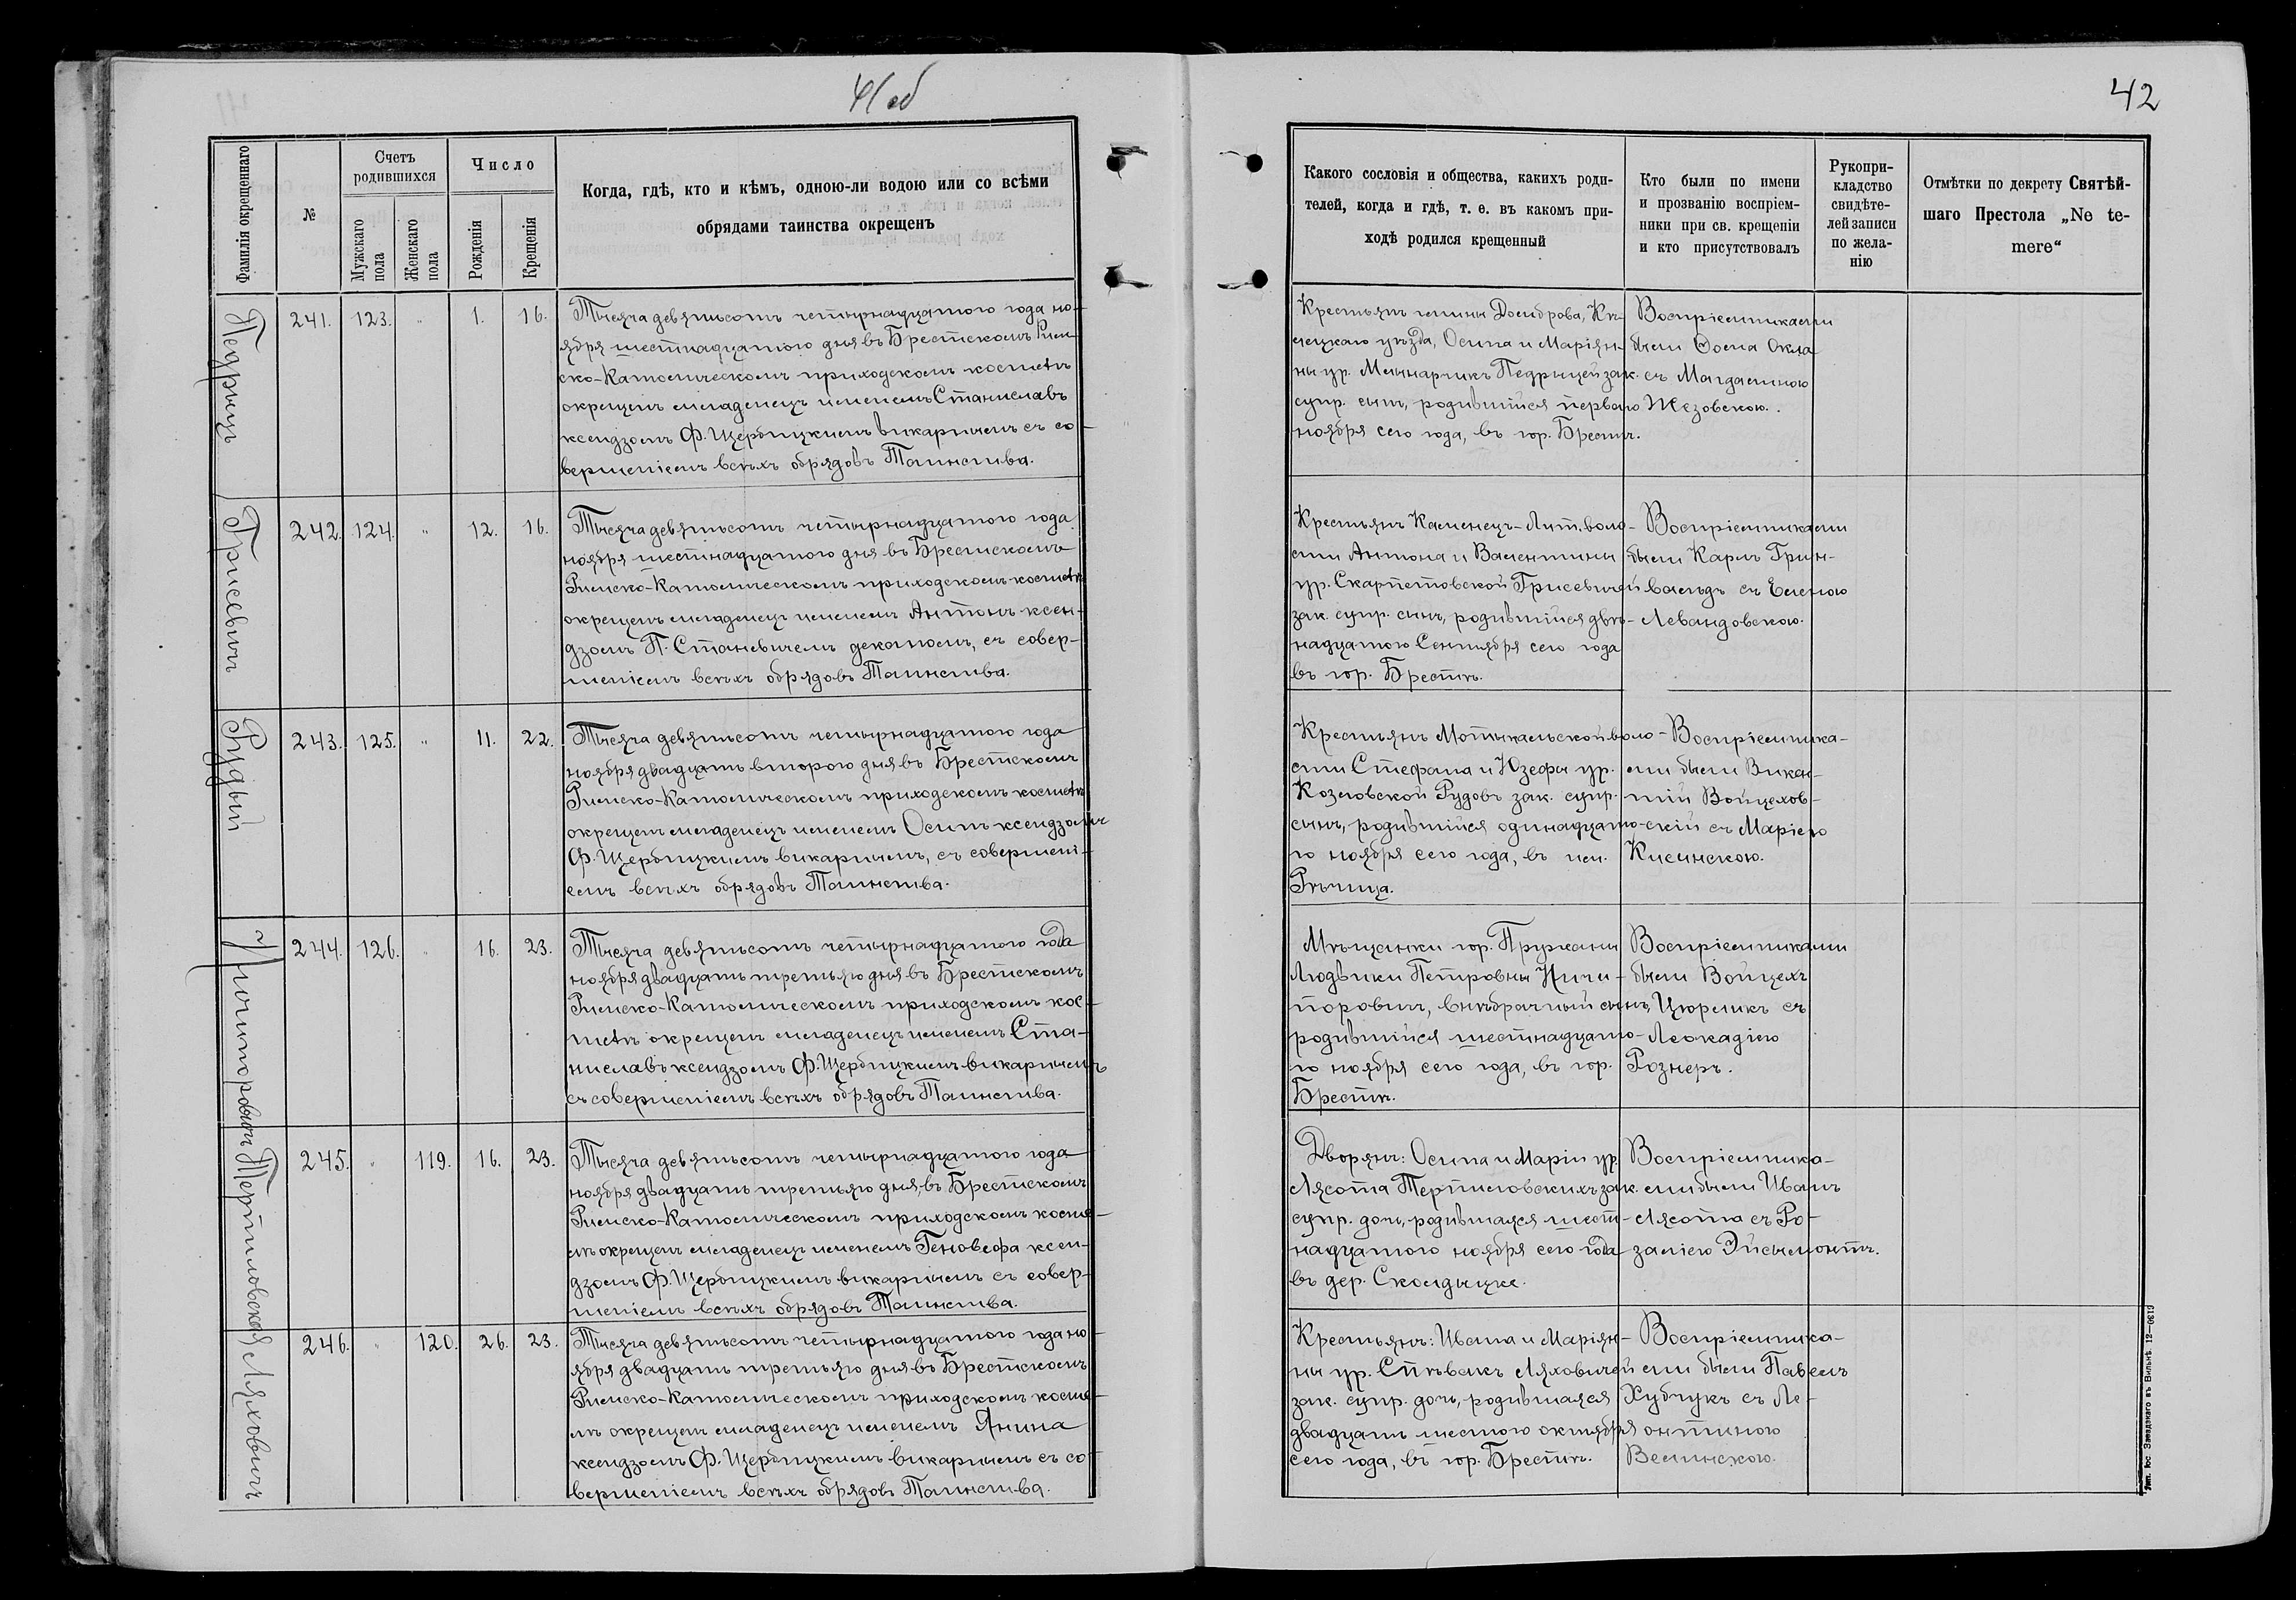 41об
Фамилія окрещеннаго
№
Счетъ
родившихся
Мужскаго
пола
Женскаго
пола
Число
Рожденія
Крещенія
Когда, гдѣ, кто и кѣмъ, одною-ли водою или со всѣми
обрядами таинства окрещенъ
Педрыцъ
241. 123. " 1. 16.
Тысяча девятьсотъ четырнадцатого года но-
ября шестнадцатого дня въ Брестскомъ Рим-
ско-Католическомъ приходскомъ костелѣ
окрещенъ младенецъ именемъ Станиславъ
ксендзомъ Ф. Щербицкимъ викаріемъ съ со-
вершеніемъ всѣхъ обрядовъ Таинства.
Грисевич
242. 124. " 12. 16.
Тысяча девятьсотъ четырнадцатого года
ноября шестнадцатого дня въ Брестскомъ
Римско-Католическомъ приходскомъ костелѣ
окрещенъ младенецъ именемъ Антонъ ксен-
дзомъ П. Станевичемъ деканомъ, съ совер-
шеніемъ всѣхъ обрядовъ Таинства.
Рудый
243. 125. " 11. 22.
Тысяча девятьсотъ четырнадцатого года
ноября двадцать второго дня въ Брестскомъ
Римско-Католическомъ приходскомъ костелѣ
окрещенъ младенецъ именемъ Осипъ ксендзомъ
Ф. Щербицкимъ викаріемъ, съ совершені-
емъ всѣхъ обрядовъ Таинства.
Ничипорович
244. 126. " 16. 23.
Тысяча девятьсотъ четырнадцатого года
ноября двадцать третьяго дня въ Брестскомъ
Римско-Католическомъ приходскомъ кос-
телѣ окрещенъ младенецъ именемъ Ста-
ниславъ ксендзомъ Ф. Щербицкимъ викаріемъ
съ совершеніемъ всѣхъ обрядовъ Таинства.
Терпиловская
245. " 119. 16. 23.
Тысяча девятьсотъ четырнадцатого года
ноября двадцать третьяго дня, въ Брестскомъ
Римско-Католическомъ приходскомъ косте-
лѣ окрещенъ младенецъ именемъ Геновефа ксен-
дзомъ Ф. Щербицкимъ викаріемъ съ совер-
шеніемъ всѣхъ обрядовъ Таинства.
Ляхович
246. " 120. 26. 23.
Тысяча девятьсотъ четырнадцатого года но-
ября двадцать третьяго дня въ Брестскомъ
Римско-Католическомъ приходскомъ косте-
лѣ окрещенъ младенецъ именемъ Янина
ксендзомъ Ф. Щербицкимъ викаріемъ съ со-
вершеніемъ всѣхъ обрядовъ Таинства.
42
Какого сословія и общества, какихъ роди-
телей, когда и гдѣ, т. е. въ какомъ при-
ходѣ родился крещенный
Кто были по имени
и прозванію воспріем-
ники при св. крещеніи
и кто присутствовалъ
Рукопри-
кладство
свидѣте-
лей записи
по жела-
нію
Отмѣтки по декрету Святѣй-
шаго Престола „Ne te-
mere“
Крестьянъ гмины Домброва, Кѣ-
лецкаго уѣзда, Осипа и Маріян-
ны ур. Млынарчикъ Педрыцей зак.
супр. сынъ, родившійся перваго
ноября сего года, въ гор. Брестѣ.
Воспріемниками
были Ѳома Окла
съ Магдалиною
Жезовскою.
Крестьянъ Каменецъ-Лит. воло-
сти Антона и Валентины
ур. Скарпетовской Грисевичей
зак. супр. сынъ, родившійся двѣ-
надцатого Сентября сего года
въ гор. Брестѣ.
Воспріемниками
были Карлъ Грин-
вальдъ съ Еленою
Левандовскою.
Крестьянъ Мотыкальской воло-
сти Стефана и Юзефы ур.
Козловской Рудовъ зак. супр.
сынъ, родившійся одинадцато-
го ноября сего года, въ им.
Рѣчица.
Воспріемника-
ми были Викен-
тій Войцехов-
скій съ Маріею
Кисинскою.
Мѣщанки гор. Пружаны
Людвики Петровны Ничи-
поровичъ, внѣбрачный сынъ,
родившійся шестнадцато-
го ноября сего года, въ гор.
Брестѣ.
Воспріемниками
были Войцехъ
Цюрликъ съ
Леокадіею
Рознеръ.
Дворянъ: Осипа и Маріи ур.
Лясота Терпиловскихъ зак.
супр. дочь, родившаяся шест-
надцатого ноября сего года
въ дер. Сколдыцке.
Воспріемника-
ми были Иванъ
Лясота съ Ро-
заліею Эйсымонтъ.
Крестьянъ: Ивана и Маріян-
ны ур. Спѣвакъ Ляховичей
зак. супр. дочь, родившаяся
двадцать шестого октября
сего года, въ гор. Брестѣ.
Воспріемника-
ми были Павелъ
Хубчукъ съ Ле-
онтиною
Велинскою.
Тип. Іос. Завадзкаго въ Вильнѣ. 12—0619